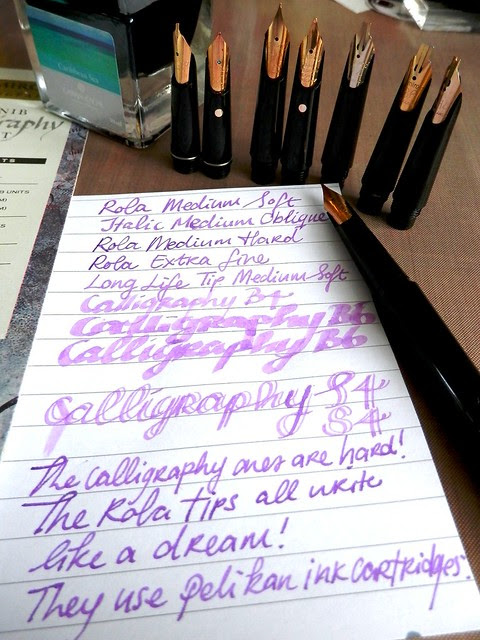 NIB
Rola Medium Soft
Italic Medium Oblique
Rola Medium Hard
Rola Extra fine
Long Life Tip Medium Soft
Calligraphy B4
Calligraphy B6
Calligraphy B6
Calligraphy S4
S4
The calligraphy ones are hard!
The Rola tips all write
like a dream!
They use pelikan ink cartridges.